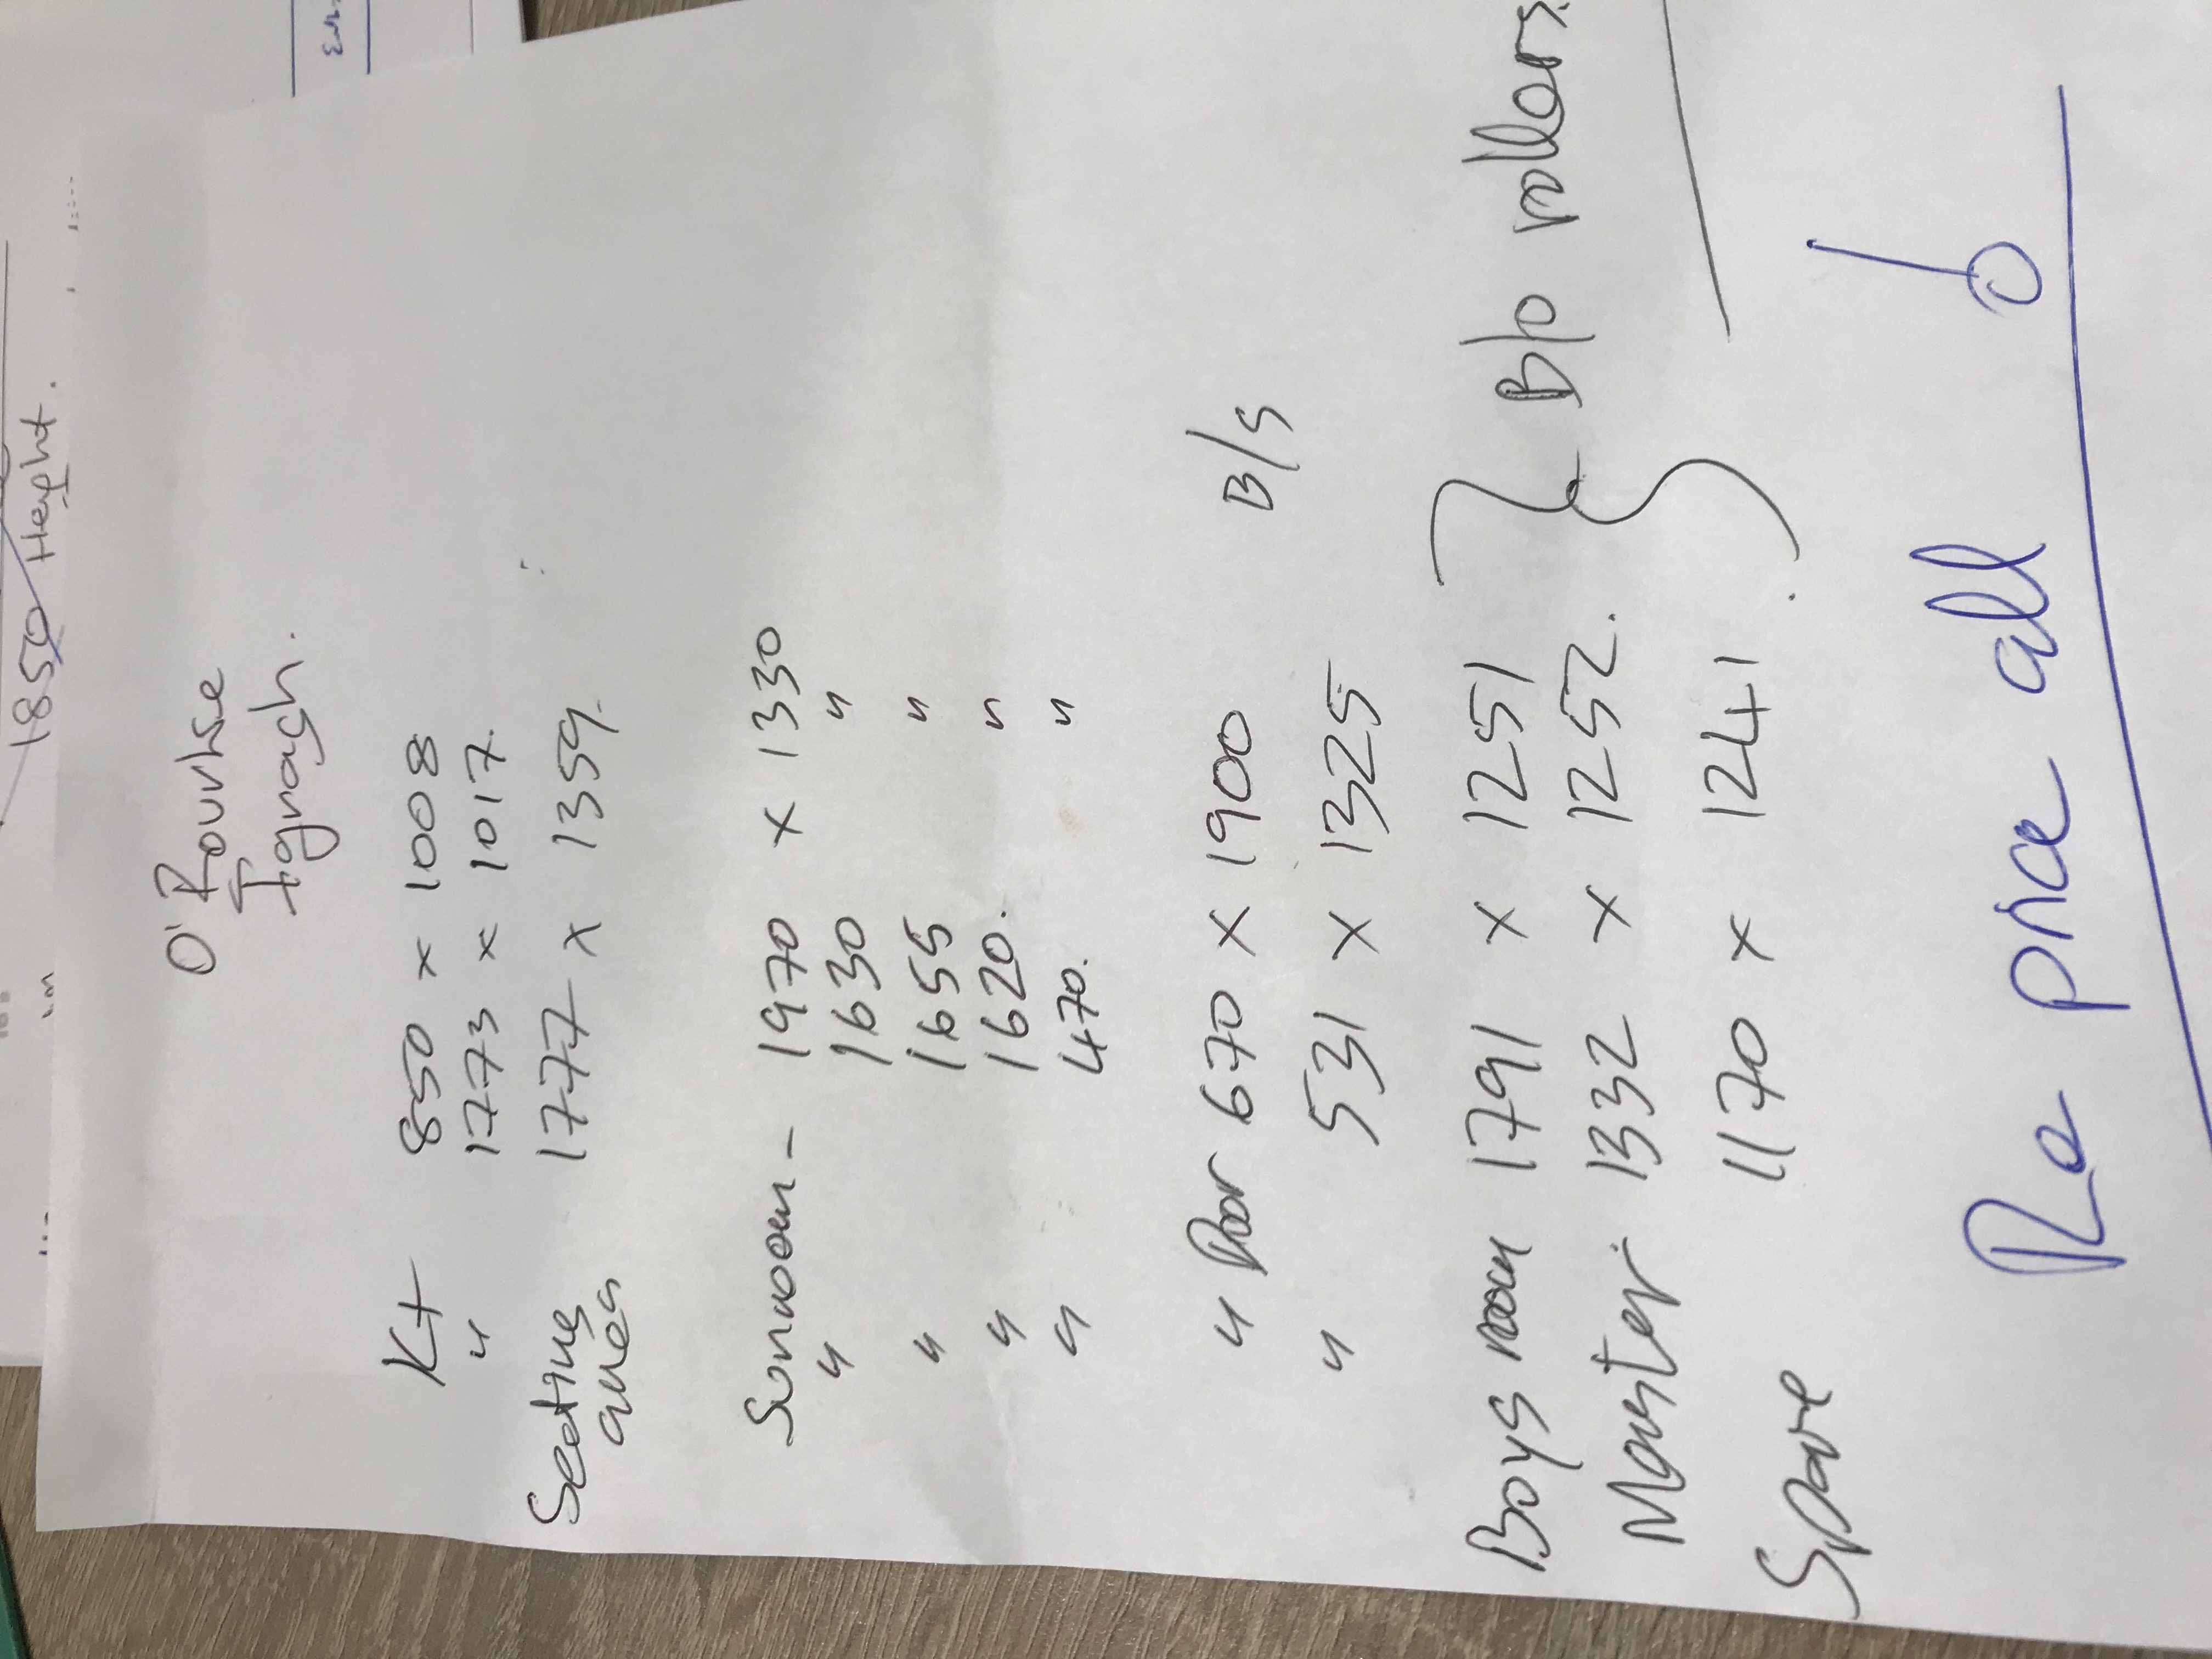 1850 Height.
O' Rourke
Tgrnagh.
Kt 850 x 1008
" 1773 x 1017.
Seating 1777 x 1359.
area
Sunroom - 1970 x 1330
" 1630 "
" 1655 "
" 1620. "
" 470. "
" Door 670 x 1900 B/S
" 531 x 1325
Boys room 1791 x 1251
Master 1332 x 1252. B/o rollers.
Spare 1170 x 1241.
Re price all